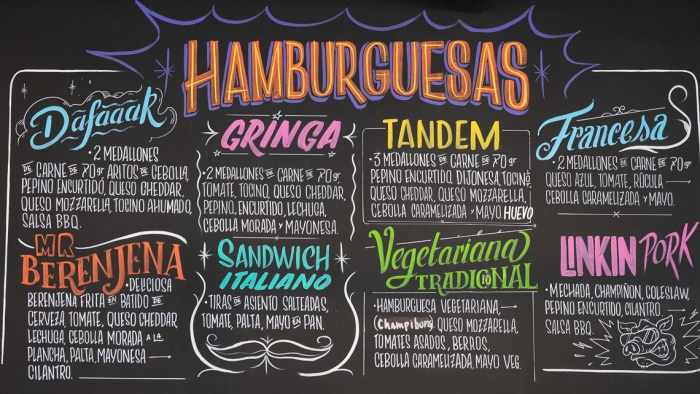 HAMBURGUESAS
Dafaaak
• 2 MEDALLONES
DE CARNE DE 70 gr ARITOS DE CEBOLLA,
PEPINO ENCURTIDO, QUESO CHEDDAR,
QUESO MOZZARELLA, TOCINO AHUMADO,
SALSA BBQ.
GRINGA
• 2 MEDALLONES DE CARNE DE 70 gr
TOMATE, TOCINO, QUESO CHEDDAR,
PEPINO, ENCURTIDO, LECHUGA,
CEBOLLA MORADA Y MAYONESA.
TANDEM
• 3 MEDALLONES DE CARNE DE 70 gr
PEPINO ENCURTIDO, DIJONESA, TOCINO,
QUESO CHEDDAR, QUESO MOZZARELLA,
CEBOLLA CARAMELIZADA Y MAYO. HUEVO
Francesa
• 2 MEDALLONES DE CARNE DE 70 gr
QUESO AZUL, TOMATE, RÚCULA
CEBOLLA CARAMELIZADA Y MAYO.
MR
BERENJENA
• DELICIOSA
BERENJENA FRITA EN BATIDO DE
CERVEZA, TOMATE, QUESO CHEDDAR
LECHUGA, CEBOLLA MORADA A LA
PLANCHA, PALTA, MAYONESA
CILANTRO.
SANDWICH
ITALIANO
• TIRAS DE ASIENTO SALTEADAS,
TOMATE, PALTA, MAYO EN PAN.
Vegetariana
TRADICIONAL
• HAMBURGUESA VEGETARIANA,
(Champiburg) QUESO MOZZARELLA,
TOMATES ASADOS, BERROS,
CEBOLLA CARAMELIZADA, MAYO VEG.
LINKIN PORK
• MECHADA, CHAMPIÑON, COLESLAW,
PEPINO ENCURTIDO, CILANTRO
SALSA BBQ.